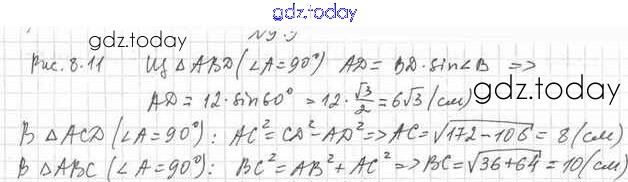 gdz.today
№9.9
gdz.today
Рис. 8.11 Из △ABD (∠A=90°) AD = BD·sin∠B =>
AD = 12·sin60° = 12·√3/2 = 6√3 (см)
gdz.today
В △ACD (∠A=90°): AC² = CD² - AD² => AC = √172-108 = 8 (см)
В △ABC (∠A=90°): BC² = AB² + AC² => BC = √36+64 = 10 (см)